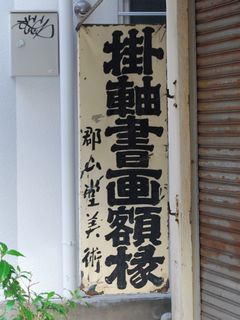 掛軸書画額縁
郡山堂美術